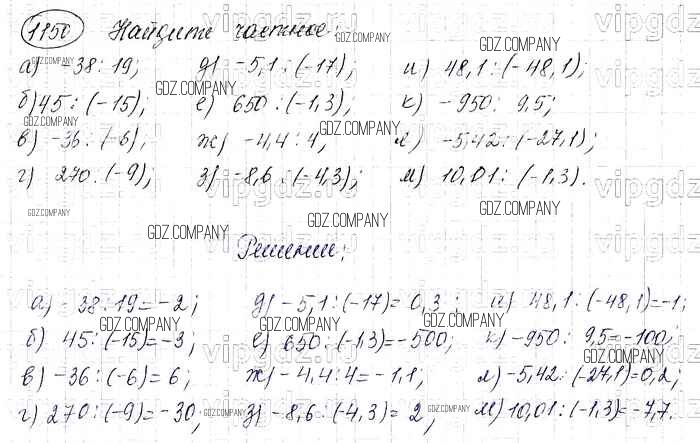 1150 Найдите частное:
а) -38 : 19; д) -5,1 : (-17); и) 48,1 : (-48,1);
б) 45 : (-15); е) 650 : (-1,3); к) -950 : 9,5;
в) -36 : (-6); ж) -4,4 : 4; л) -5,42 : (-27,1);
г) 270 : (-9); з) -8,6 : (-4,3); м) 10,01 : (-1,3).
Решение:
а) -38 : 19 = -2; д) -5,1 : (-17) = 0,3; и) 48,1 : (-48,1) = -1;
б) 45 : (-15) = -3; е) 650 : (-1,3) = -500; к) -950 : 9,5 = -100;
в) -36 : (-6) = 6; ж) -4,4 : 4 = -1,1; л) -5,42 : (-27,1) = 0,2;
г) 270 : (-9) = -30; з) -8,6 : (-4,3) = 2; м) 10,01 : (-1,3) = -7,7.